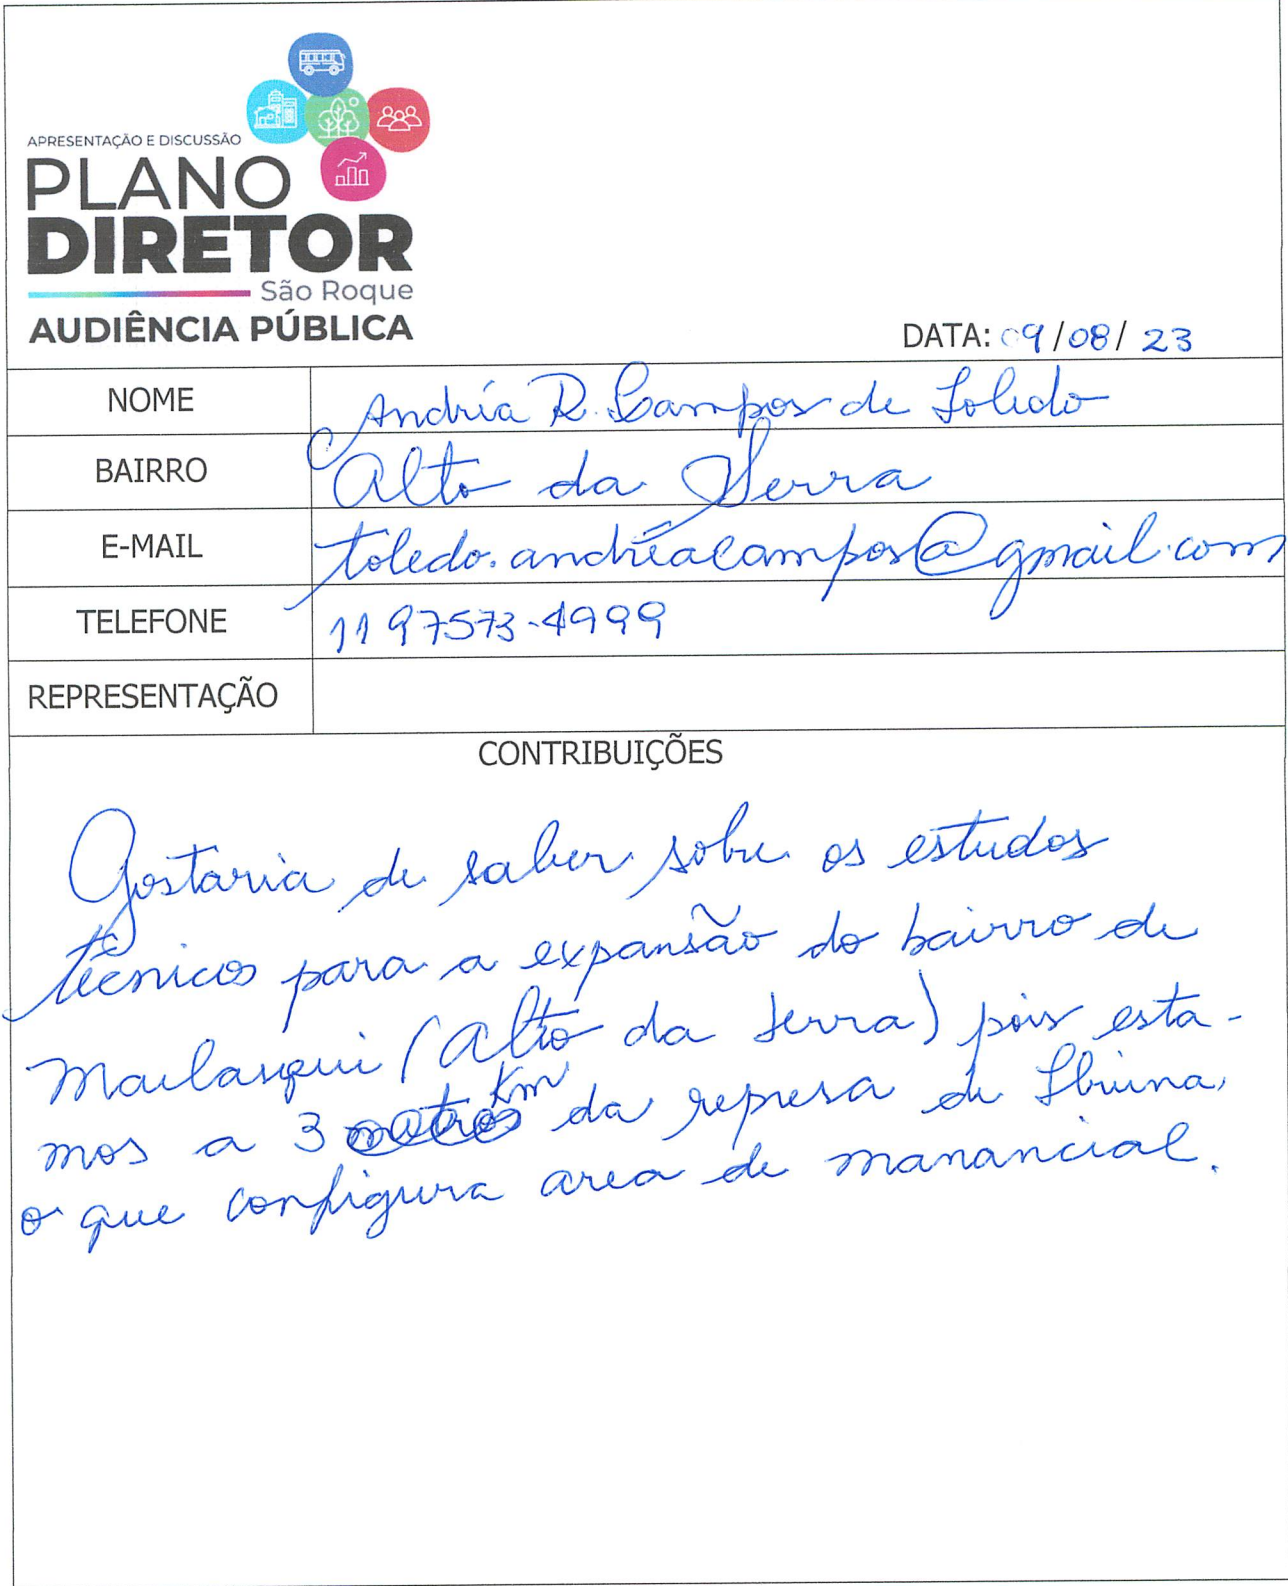 APRESENTAÇÃO E DISCUSSÃO
PLANO
DIRETOR
São Roque
AUDIÊNCIA PÚBLICA
DATA: 09/08/23
NOME Andréa R. Campos de Toledo
BAIRRO Alto da Serra
E-MAIL toledo.andréacampos@gmail.com
TELEFONE 11 97573-4999
REPRESENTAÇÃO
CONTRIBUIÇÕES
Gostaria de saber sobre os estudos
técnicos para a expansão do bairro de
Mailasqui (Alto da Serra) pois esta-
mos a 3 metros Km da represa de Ibiuna,
o que configura area de manancial.